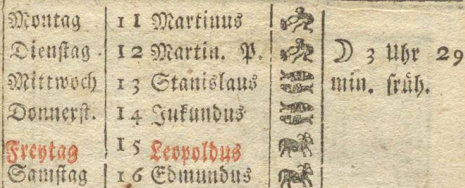 Montag 11 Martinus
Dienstag. 12 Martin. P. ☽ 3 Uhr 29
Mittwoch 13 Stanislaus min. früh.
Donnerst. 14 Jukundus
Freytag 15 Leopoldus
Samstag 16 Edmundus